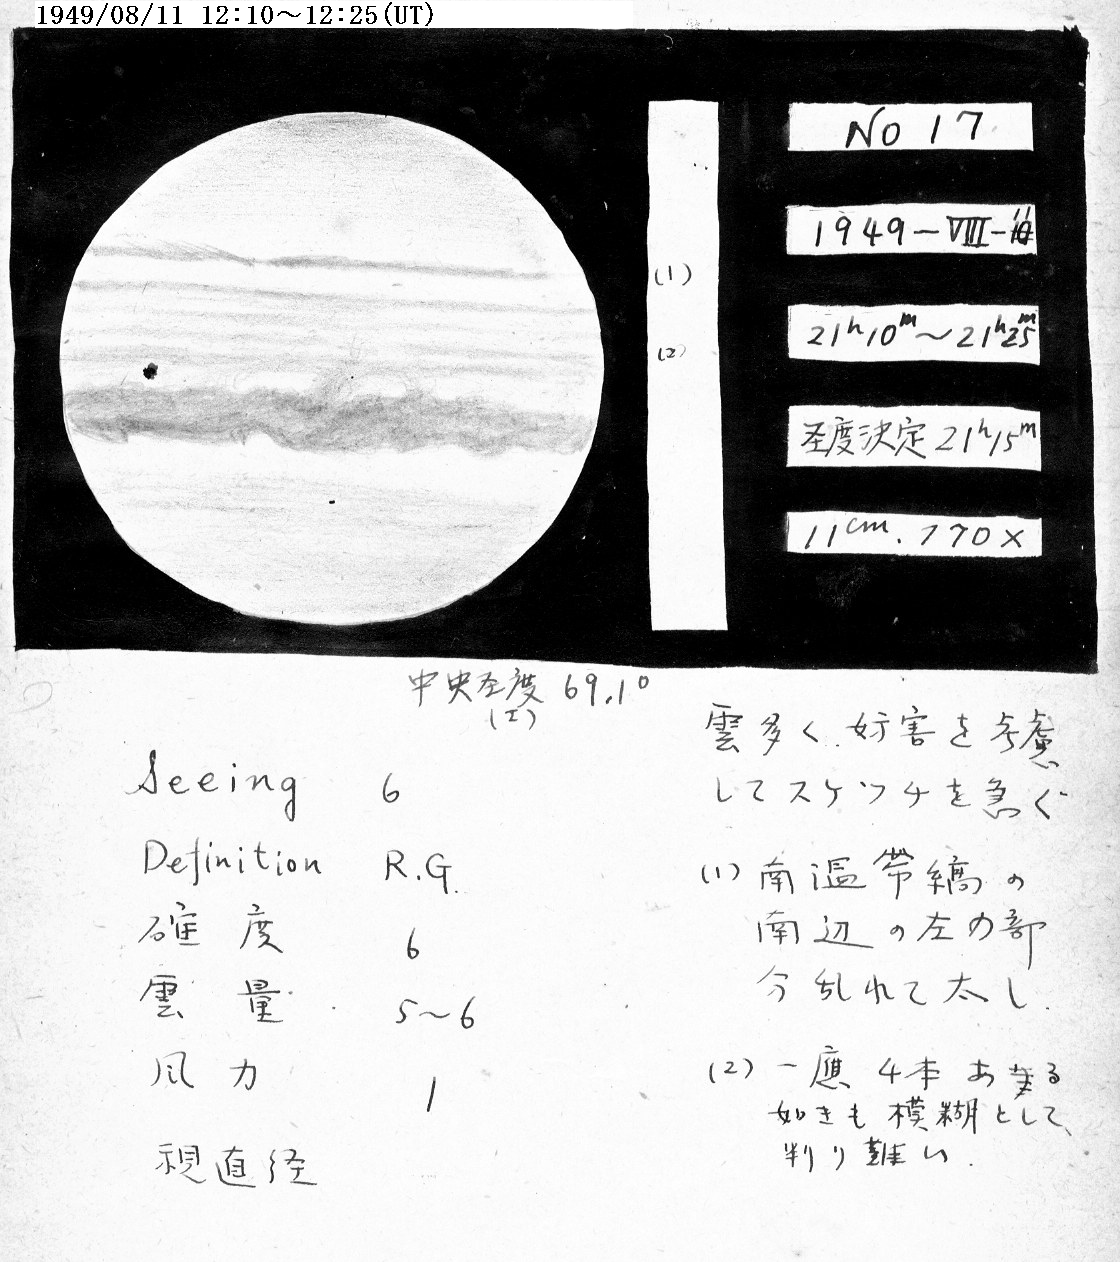 1949/08/11 12:10～12:25(UT)
No 17
1949-VIII-11
(1)
21h10m～21h25m
(2)
圣度決定 21h15m
11cm. 170×
中央圣度 69.1°
(I)
雲多く 妨害を考慮
してスケッチを急ぐ
Seeing 6
Definition R.G.
(1) 南温帯縞の
確度 6
南辺の左の部
雲量 5～6
分乱れて太し.
風力 1
(2) 一應 4本 ある
如きも模糊として、
判り難い.
視直径